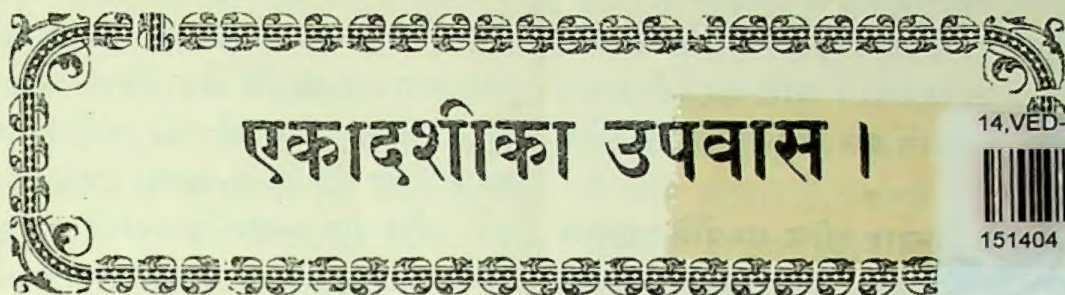 एकादशीका उपवास ।
14,VED-
151404